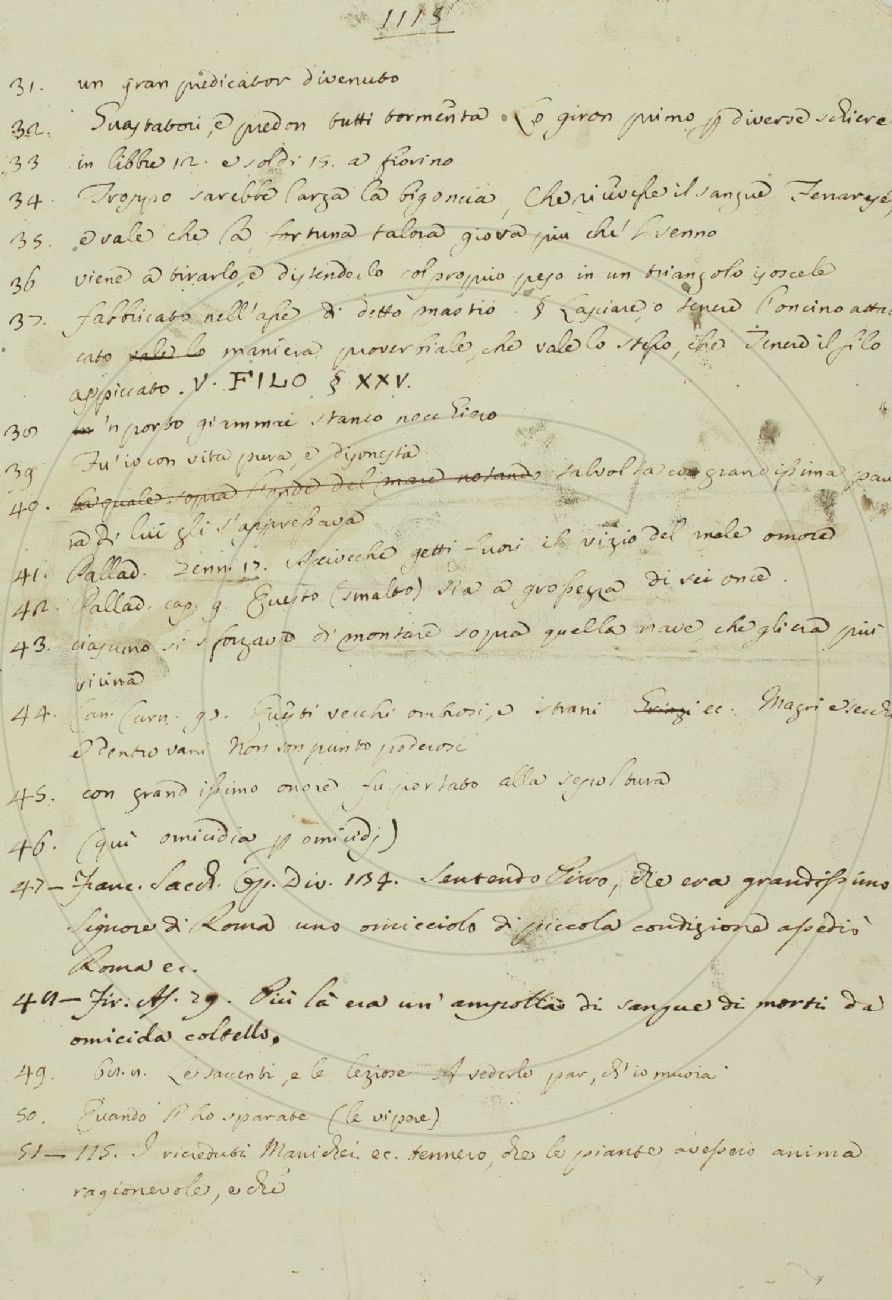 1113
31. un gran predicator divenuto
32. Guastatori, e predon tutti tormenta. Lo giron primo p diverse schiere
33 in libbre 12. e soldi 15. a fiorino
34. Troppo sarebbe larga la bigoncia, Che ricevesse il sangue Ferrarese,
35. e vale che la fortuna talora giova più ch'l senno
36 viene a tirarlo, e distenderlo col proprio peso in un triangolo isoscele
37. fabbricato nell'asse di detto mastio. § Lasciare, o tenere l'oncino attac
cato vale lo maniera proverbiale, che vale lo stesso, che Tenere il filo
appiccato. V. FILO § XXV.
38 in 'n porto giammai stanco nocchiero
39 Fu' io con vita pura, e disonesta
40. la quale sopra l'onde del mare notando talvolta con grandissima pau
ra di lui gli s'appressava
41. Pallad. Genn. 17. Acciocchè getti fuori il vizio del male omore
42. Pallad. cap. 9. Questo (smalto) sia a grossezza di sei once.
43. ciascuno si sforzava di montare sopra quella nave che gli era più
vicina
44. Can. Carn. 97. Questi vecchi ombrosi, e strani Grinzi ec. Magri e secchi
e dentro vani Non son punto poderosi
45. con grandissimo onore fu portato alla sepoltura
46. (qui omicidia p omicidj)
47 - Franc. Sacch. Op. Div. 134. Sentendo Pirro, che era grandissimo
Signore di Roma uno omicciolo di piccola condizione assediò
Roma ec.
48 - Fir. As. 29. Più là era un' ampolla di sangue di morti da
omicida coltello.
49. Le saccenti, e le leziose A vederlo par, ch'io muoia
50. Quando l'ho sparate (le vipere)
51 - 115. I riceduti Manichei ec. tennero, che le piante avessero anima
ragionevole, e che